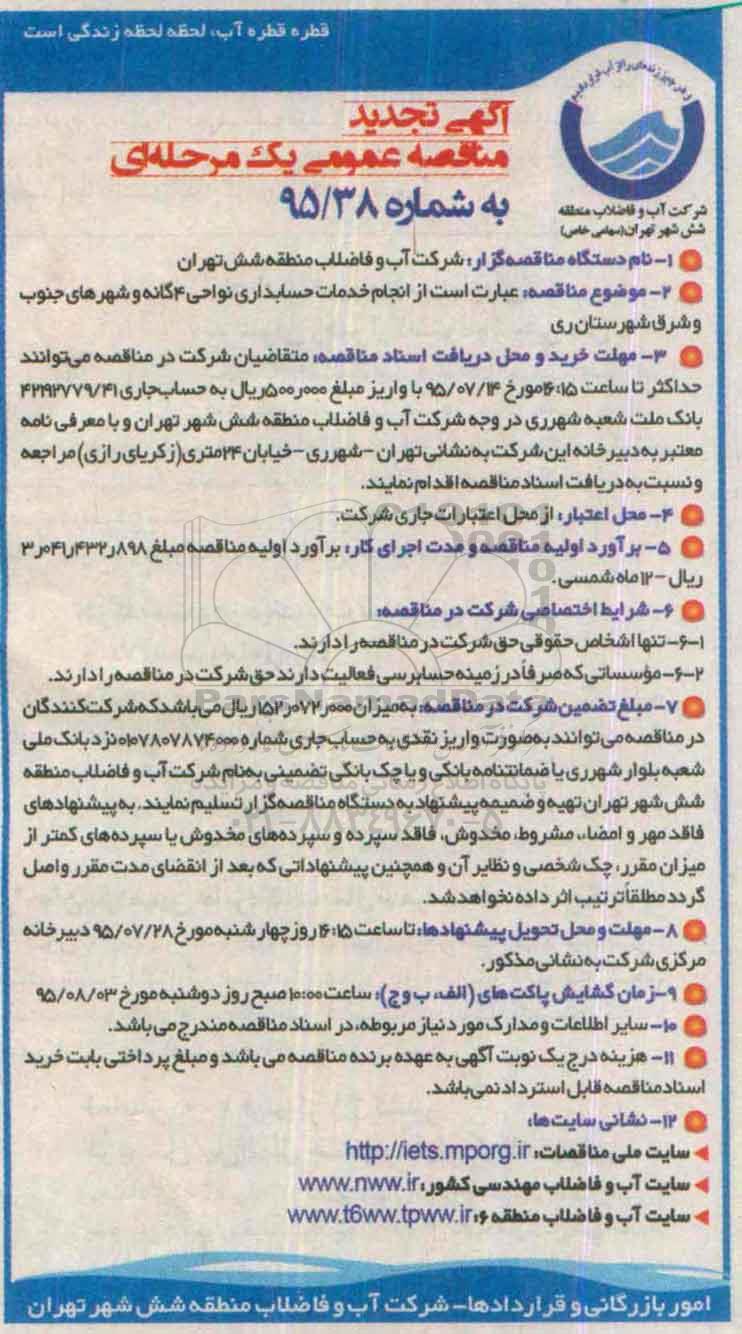 قطره قطره آب، لحظه لحظه زندگی است
و هر چیز زنده‌ای را از آب قرار دادیم
شرکت آب و فاضلاب منطقه
شش شهر تهران (سهامی خاص)
آگهی تجدید
مناقصه عمومی یک مرحله‌ای
به شماره ۹۵/۳۸
۱- نام دستگاه مناقصه‌گزار: شرکت آب و فاضلاب منطقه شش تهران
۲- موضوع مناقصه: عبارت است از انجام خدمات حسابداری نواحی ۴گانه و شهرهای جنوب
و شرق شهرستان ری
۳- مهلت خرید و محل دریافت اسناد مناقصه: متقاضیان شرکت در مناقصه می‌توانند
حداکثر تا ساعت ۱۶:۱۵ مورخ ۹۵/۰۷/۱۴ با واریز مبلغ ۵۰۰٫۰۰۰ ریال به حساب‌جاری ۴۲۱۹۲۷۷۹/۴۱
بانک ملت شعبه شهرری در وجه شرکت آب و فاضلاب منطقه شش شهر تهران و با معرفی نامه
معتبر به دبیرخانه این شرکت به نشانی تهران -شهرری -خیابان ۲۴متری(زکریای رازی) مراجعه
و نسبت به دریافت اسناد مناقصه اقدام نمایند.
۴- محل اعتبار: از محل اعتبارات جاری شرکت.
۵- برآورد اولیه مناقصه و مدت اجرای کار: برآورد اولیه مناقصه مبلغ ۳٫۰۴۱٫۴۳۲٫۸۹۸
ریال -۱۲ ماه شمسی.
۶- شرایط اختصاصی شرکت در مناقصه:
۶-۱- تنها اشخاص حقوقی حق شرکت در مناقصه را دارند.
۶-۲- مؤسساتی که صرفاً در زمینه حسابرسی فعالیت دارند حق شرکت در مناقصه را دارند.
۷- مبلغ تضمین شرکت در مناقصه: به میزان ۱۵۲٫۰۷۲٫۰۰۰ ریال می‌باشد که شرکت‌کنندگان
در مناقصه می‌توانند به‌صورت واریز نقدی به حساب‌جاری شماره ۰۱۰۷۸۰۷۸۷۴۰۰۰ نزد بانک ملی
شعبه بلوار شهرری یا ضمانتنامه بانکی و یا چک بانکی تضمینی به‌نام شرکت آب و فاضلاب منطقه
شش شهر تهران تهیه و ضمیمه پیشنهاد به دستگاه مناقصه‌گزار تسلیم نمایند. به پیشنهادهای
فاقد مهر و امضاء، مشروط، مخدوش، فاقد سپرده و سپرده‌های مخدوش یا سپرده‌های کمتر از
میزان مقرر، چک شخصی و نظایر آن و همچنین پیشنهاداتی که بعد از انقضای مدت مقرر واصل
گردد مطلقاً ترتیب اثر داده نخواهد شد.
۸- مهلت و محل تحویل پیشنهادها: تا ساعت ۱۶:۱۵ روز چهارشنبه مورخ ۹۵/۰۷/۲۸ دبیرخانه
مرکزی شرکت به نشانی مذکور.
۹- زمان گشایش پاکت‌های (الف، ب و ج): ساعت ۱۰:۰۰ صبح روز دوشنبه مورخ ۹۵/۰۸/۰۳
۱۰- سایر اطلاعات و مدارک مورد نیاز مربوطه، در اسناد مناقصه مندرج می باشد.
۱۱- هزینه درج یک نوبت آگهی به عهده برنده مناقصه می باشد و مبلغ پرداختی بابت خرید
اسناد مناقصه قابل استرداد نمی‌باشد.
۱۲- نشانی سایت‌ها:
سایت ملی مناقصات: http://iets.mporg.ir
سایت آب و فاضلاب مهندسی کشور: www.nww.ir
سایت آب و فاضلاب منطقه ۶: www.t6ww.tpww.ir
امور بازرگانی و قراردادها- شرکت آب و فاضلاب منطقه شش شهر تهران
ParsNamadData
پایگاه اطلاع رسانی مناقصه و مزایده
۰۲۱-۸۸۳۴۹۶۷۰-۵